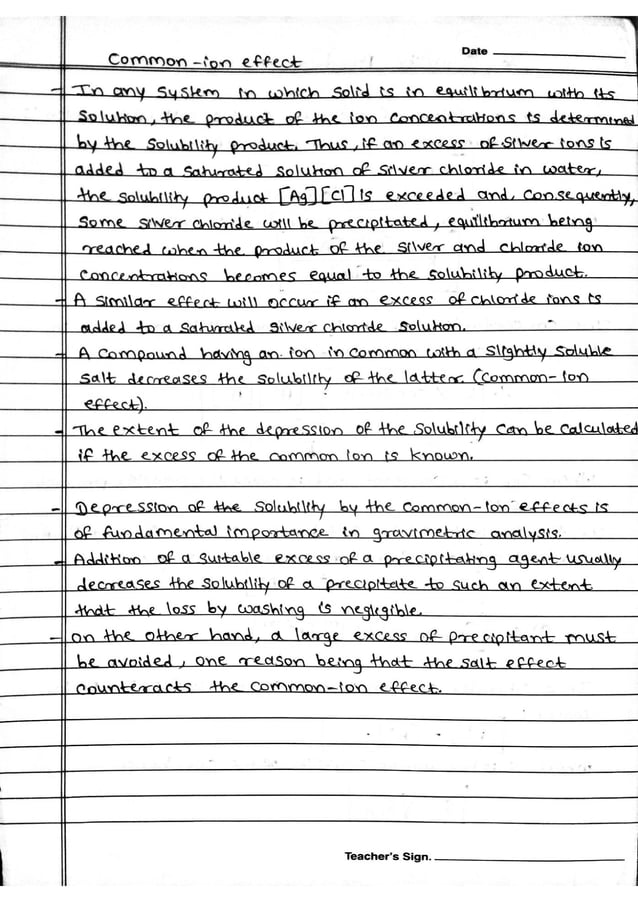 Date
Common-ion effect
- In any system in which solid is in equilibrium with its
solution, the product of the ion concentrations is determined
by the solubility product. Thus, if an excess of silver ions is
added to a saturated solution of silver chloride in water,
the solubility product [Ag][Cl] is exceeded and, consequently,
some silver chloride will be precipitated, equilibrium being
reached when the product of the silver and chloride ion
concentrations becomes equal to the solubility product.
- A similar effect will occur if an excess of chloride ions is
added to a saturated silver chloride solution.
- A compound having an ion in common with a slightly soluble
salt decreases the solubility of the latter (common-ion
effect).
- The extent of the depression of the solubility can be calculated
if the excess of the common ion is known.
- Depression of the solubility by the common-ion effects is
of fundamental importance in gravimetric analysis.
- Addition of a suitable excess of a precipitating agent usually
decreases the solubility of a precipitate to such an extent
that the loss by washing is neglegible.
- on the other hand, a large excess of precipitant must
be avoided, one reason being that the salt effect
counteracts the common-ion effect.
Teacher's Sign.